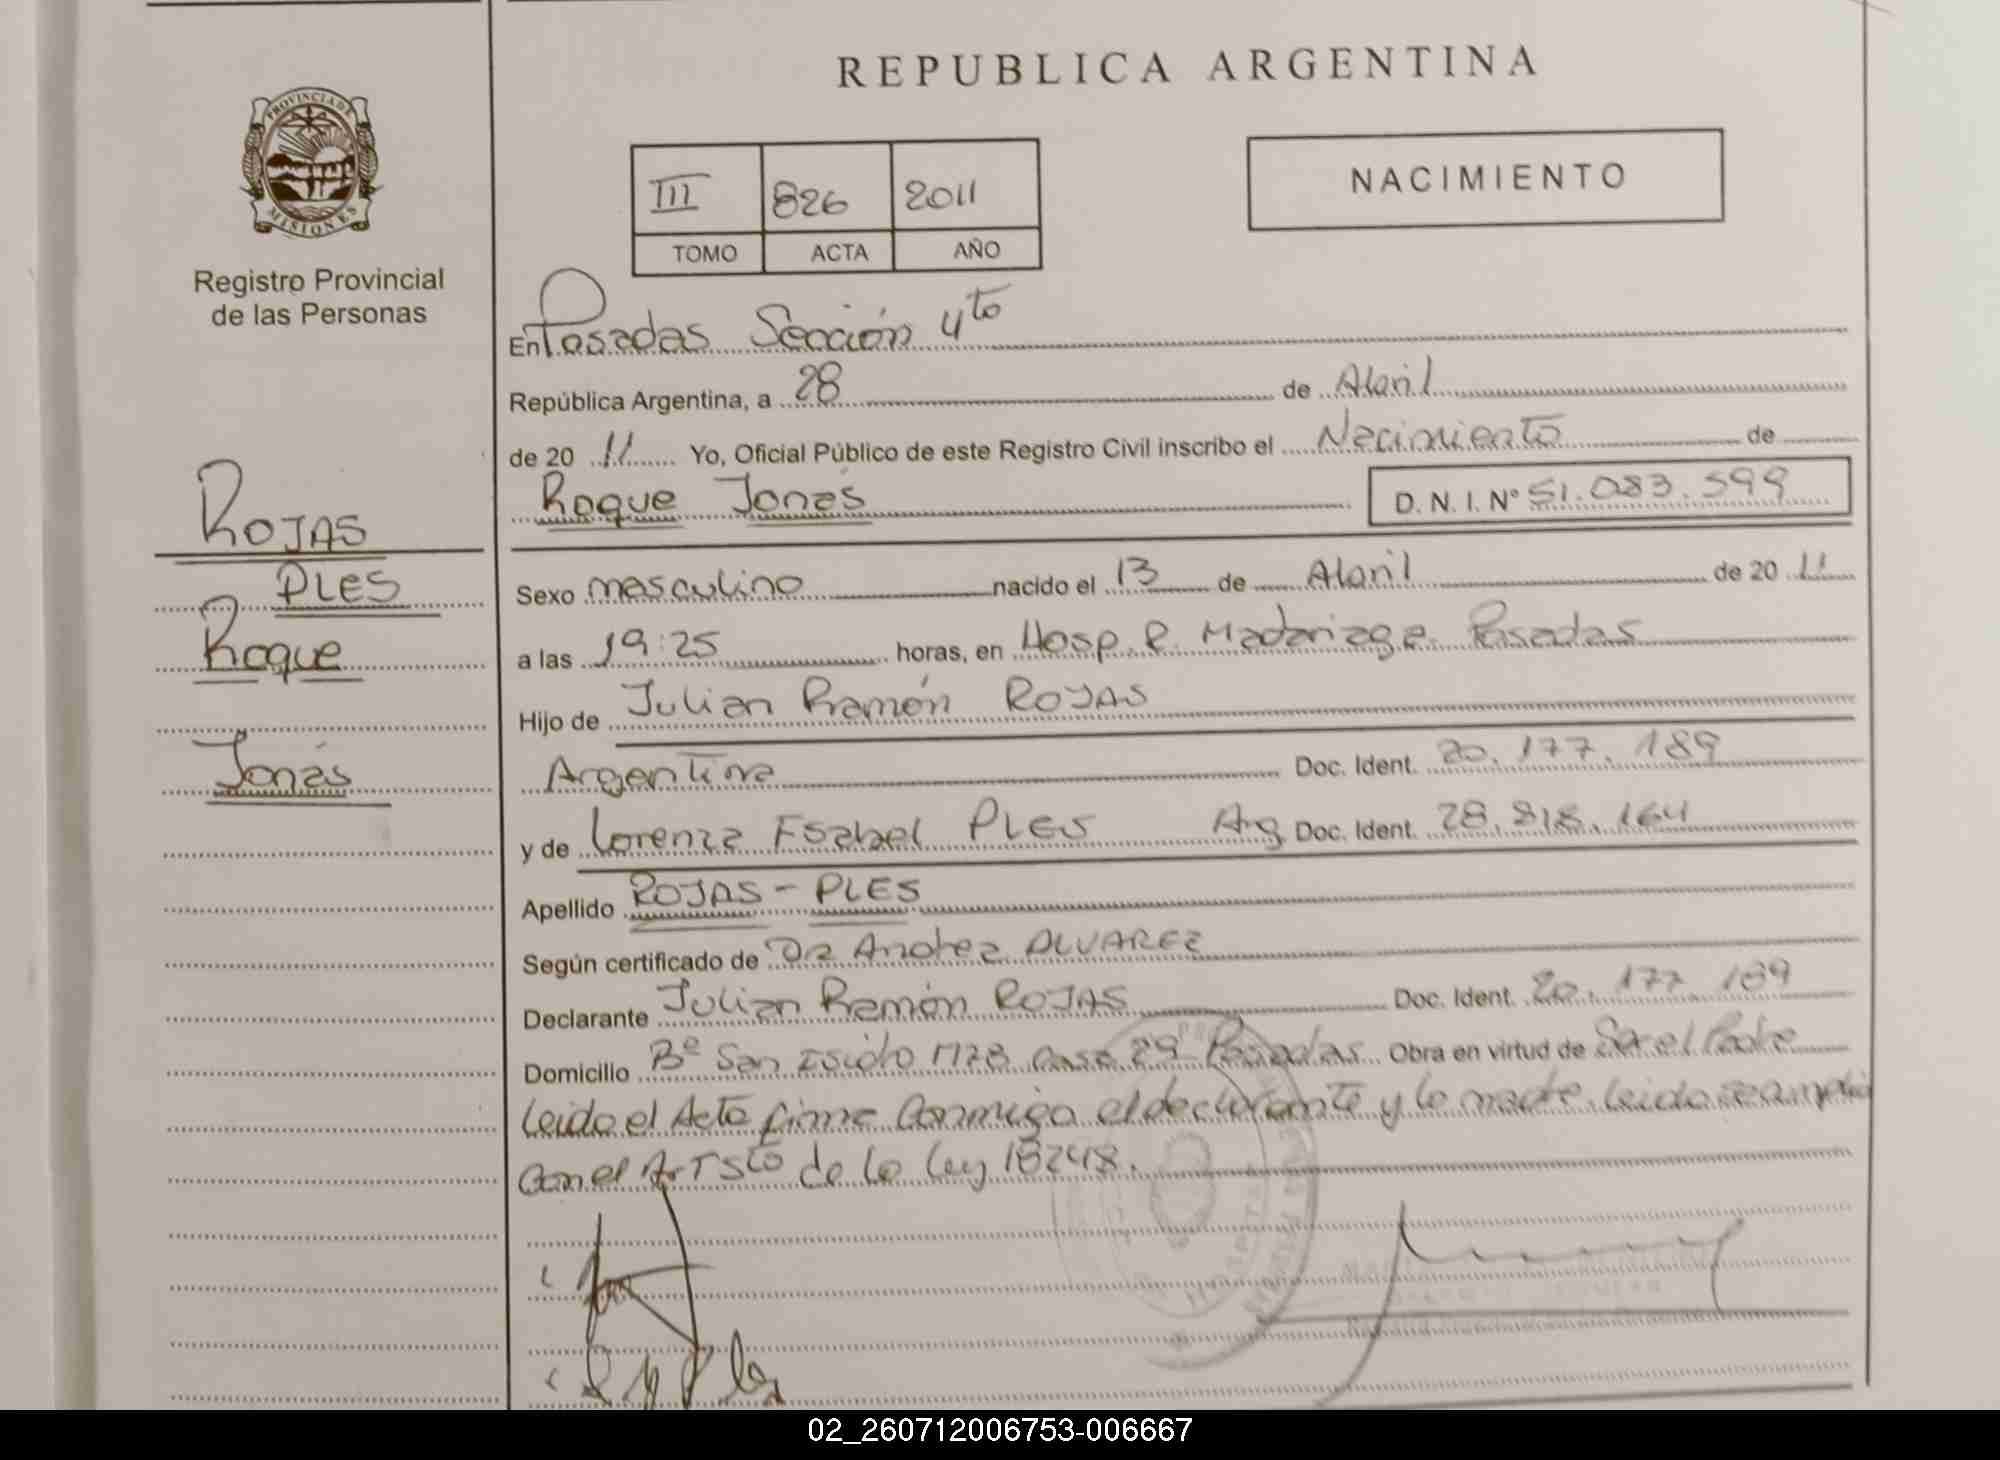 REPUBLICA ARGENTINA
PROVINCIA DE
MISIONES
Registro Provincial
de las Personas
III 826 2011
TOMO ACTA AÑO
NACIMIENTO
ROJAS
PLES
Roque
Jonás
En Posadas Sección 4to
República Argentina, a 28 de Abril
de 20 11 Yo, Oficial Público de este Registro Civil inscribo el Nacimiento de
Roque Jonás D. N. I. N° 51.083.599
Sexo masculino nacido el 13 de Abril de 20 11
a las 19:25 horas, en Hosp. R. Madariaga. Posadas
Hijo de Julian Ramón ROJAS
Argentina Doc. Ident. 20.177.189
y de Lorenza Isabel PLES Arg Doc. Ident. 28.818.164
Apellido ROJAS - PLES
Según certificado de Dr Andrez ALVAREZ
Declarante Julian Ramón ROJAS Doc. Ident. 20.177.189
Domicilio B° San Isidro casa 29 Posadas Obra en virtud de Ser el Padre
Leida el Acta firma Conmigo el declarante y la madre. Leida se
Con el Art 5to de la Ley 18248.
02_260712006753-006667